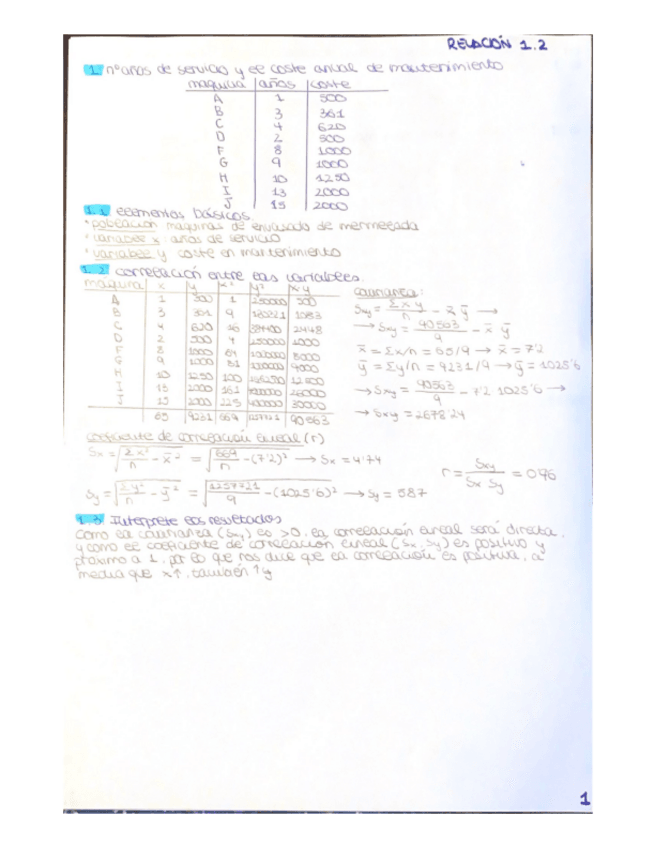 RELACIÓN 1.2
1 nº años de servicio y el coste anual de mantenimiento
maquina años coste
A 1 500
B 3 361
C 4 620
D 2 500
F 8 1000
G 9 1000
H 10 1250
I 13 2000
J 15 2000
1.1 elementos básicos.
· población maquinas de envasado de mermelada
· variable x: años de servicio
· variable y coste en mantenimiento
1.2 correlación entre las variables
maquina x y x² y² x·y
A 1 500 1 250000 500
B 3 361 9 1083
C 4 620 16
D 2 500 4 250000 1000
F 8 1000 1000000 8000
G 9 1000 81 9000
H 10 1250 100
I 13 2000
J 15 2000 225 30000
65 9231 669 90563
covarianza:
Sxy = Σxy/n - x̄ ȳ →
→ Sxy = 90563/9 - x̄ ȳ
x̄ = Σx/n = 65/9 → x̄ = 7'2
ȳ = Σy/n = 9231/9 → ȳ = 1025'6
→ Sxy = 90563/9 - 7'2 · 1025'6 →
→ Sxy = 2678'24
coeficiente de correlación lineal (r)
Sx = √(Σx²/n - x̄²) = √(669/9 - (7'2)²) → Sx = 4'74
r = Sxy/(Sx Sy) = 0'96
Sy = √(Σy²/n - ȳ²) = √(/9 - (1025'6)²) → Sy = 587
1.3. Interprete los resultados
Como la covarianza (Sxy) es >0, la correlación lineal será directa,
y como el coeficiente de correlación lineal (Sx, Sy) es positivo y
próximo a 1, por lo que nos dice que la correlación es positiva, a
media que x↑, también ↑y
1